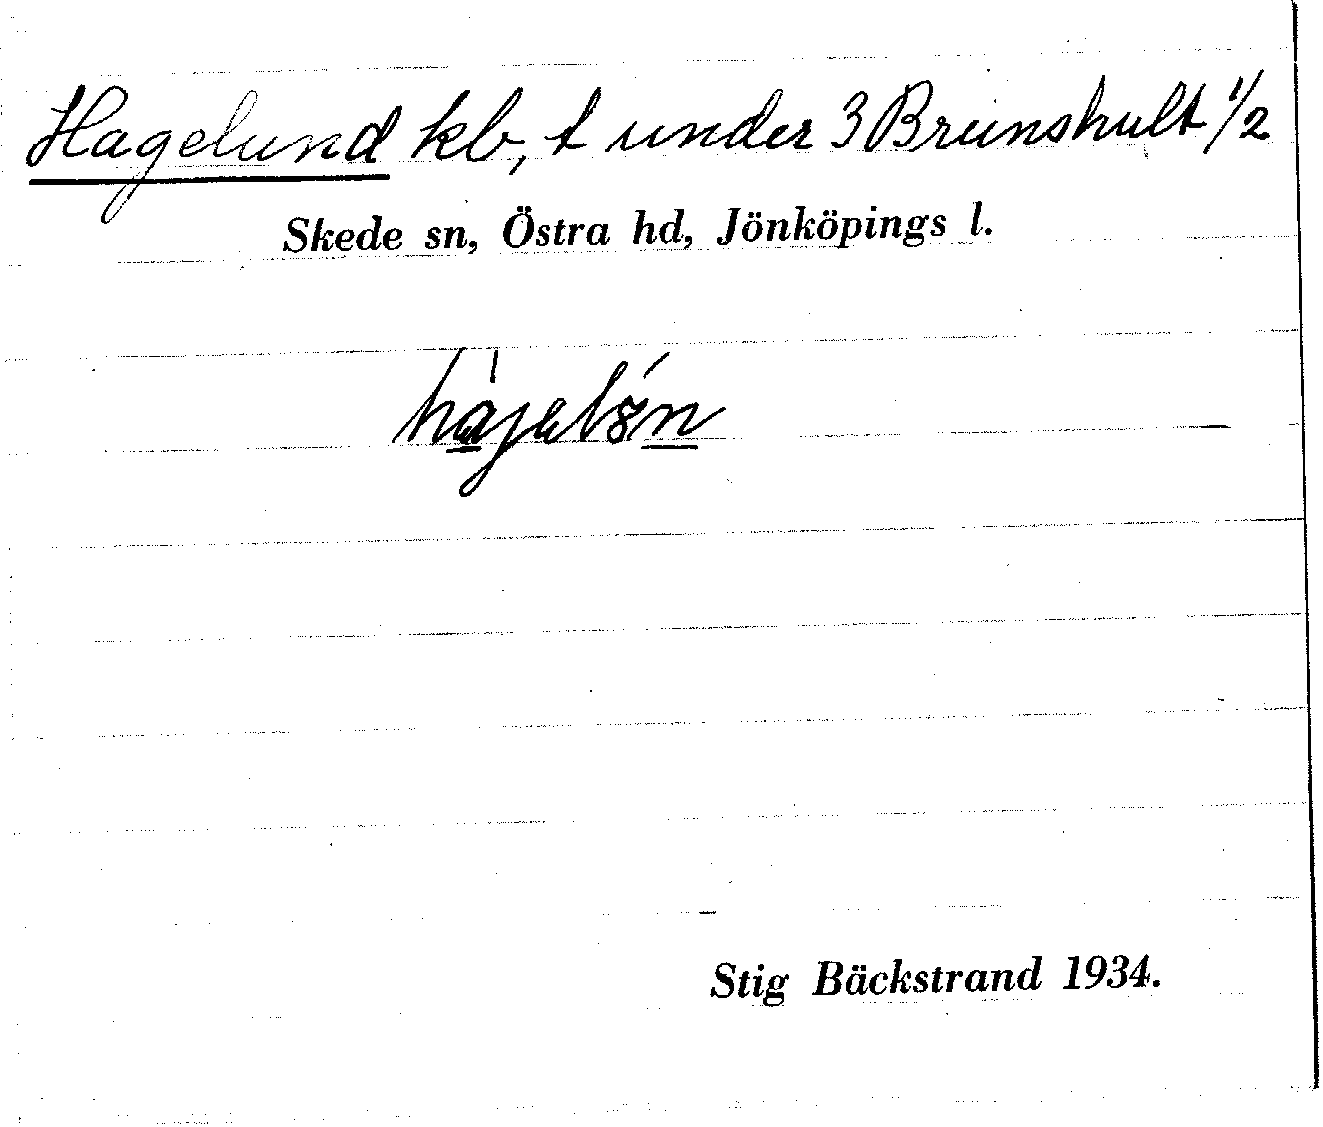 Hagelund kb, t under 3 Brunshult 1/2
Skede sn, Östra hd, Jönköpings l.
Stig Bäckstrand 1934.